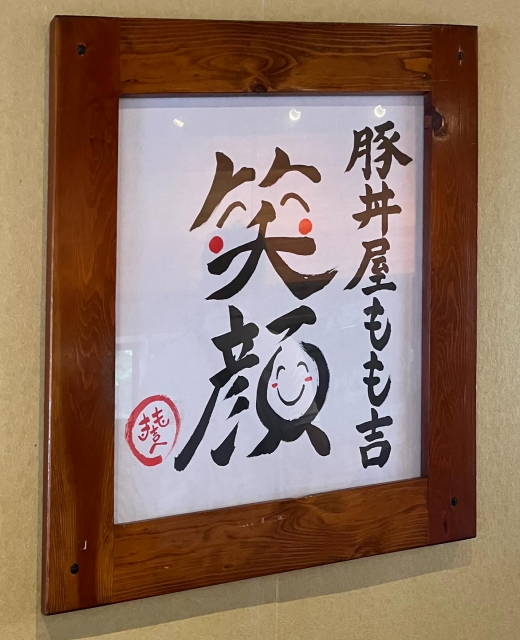 豚丼屋もも吉
笑顔